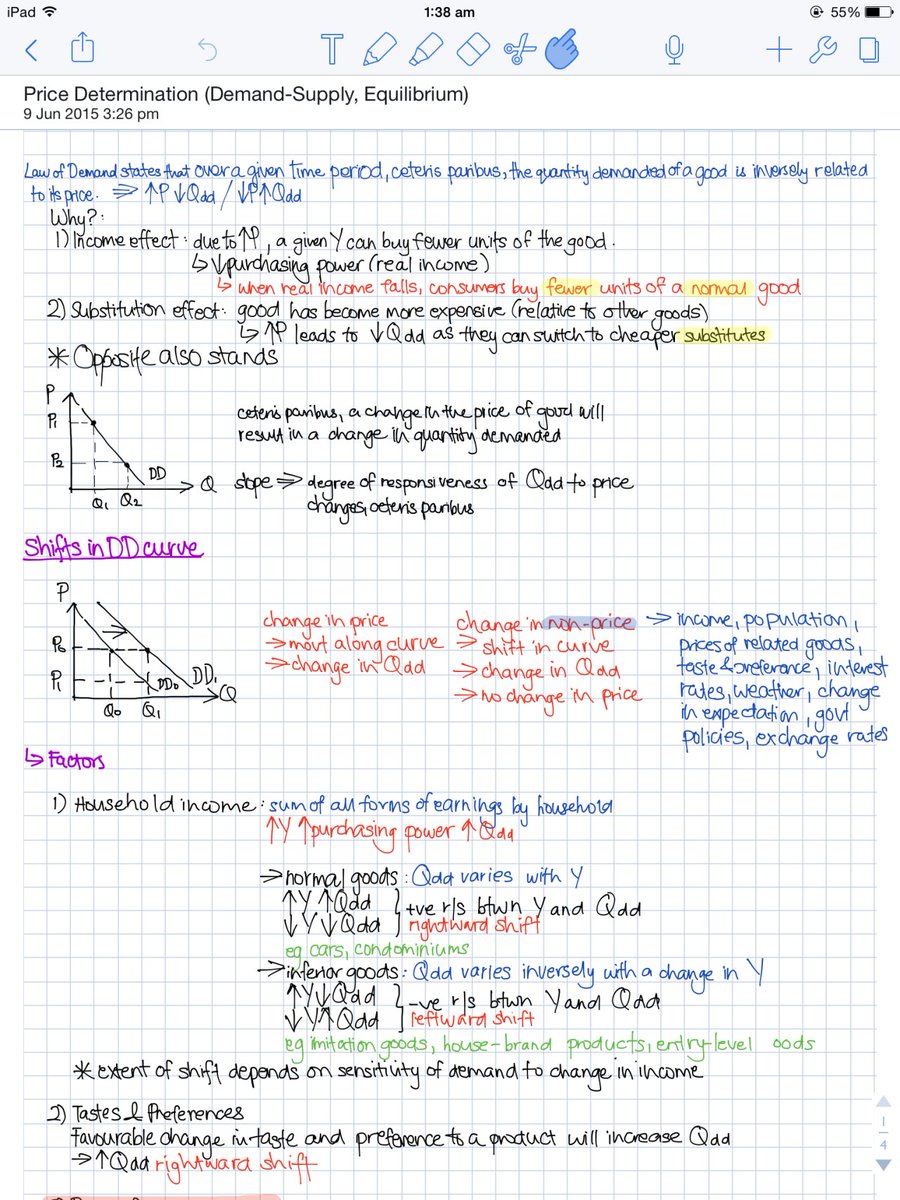 iPad
1:38 am
55%
T
Price Determination (Demand-Supply, Equilibrium)
9 Jun 2015 3:26 pm
Law of Demand states that over a given time period, ceteris paribus, the quantity demanded of a good is inversely related
to its price. ⇒ ↑P ↓Qdd / ↓P ↑Qdd
Why?:
1) Income effect: due to ↑P, a given Y can buy fewer units of the good.
↳ ↓purchasing power (real income)
↳ when real income falls, consumers buy fewer units of a normal good
2) Substitution effect: good has become more expensive (relative to other goods)
↳ ↑P leads to ↓Qdd as they can switch to cheaper substitutes
* Opposite also stands
P
P1
P2
DD
Q
Q1 Q2
ceteris paribus, a change in the price of good will
result in a change in quantity demanded
slope ⇒ degree of responsiveness of Qdd to price
changes, ceteris paribus
Shifts in DD curve
P
P0
P1
DD0 DD1
Q
Q0 Q1
change in price
→ movt along curve
→ change in Qdd
change in non-price
→ shift in curve
→ change in Qdd
→ no change in price
→ income, population,
prices of related goods,
taste & preference, interest
rates, weather, change
in expectation, govt
policies, exchange rates
↳ Factors
1) Household income: sum of all forms of earnings by household
↑Y ↑purchasing power ↑Qdd
→ normal goods: Qdd varies with Y
↑Y ↑Qdd } +ve r/s btwn Y and Qdd
↓Y ↓Qdd } rightward shift
eg cars, condominiums
→ inferior goods: Qdd varies inversely with a change in Y
↑Y ↓Qdd } -ve r/s btwn Y and Qdd
↓Y ↑Qdd } leftward shift
eg imitation goods, house-brand products, entry-level oods
* extent of shift depends on sensitivity of demand to change in income
2) Tastes & Preferences
Favourable change in taste and preference to a product will increase Qdd
→ ↑Qdd rightward shift
1
4